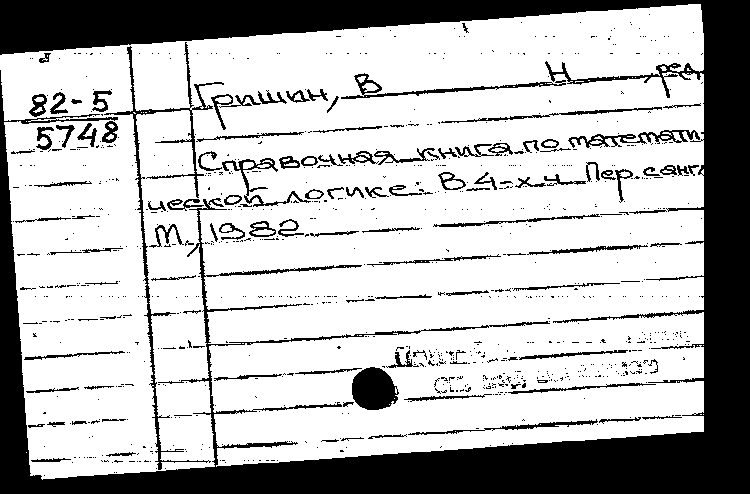 82-5
5748
Гришин, В Н , ред
Справочная книга по математи-
ческой логике: В 4-х ч Пер. с англ
М., 1982